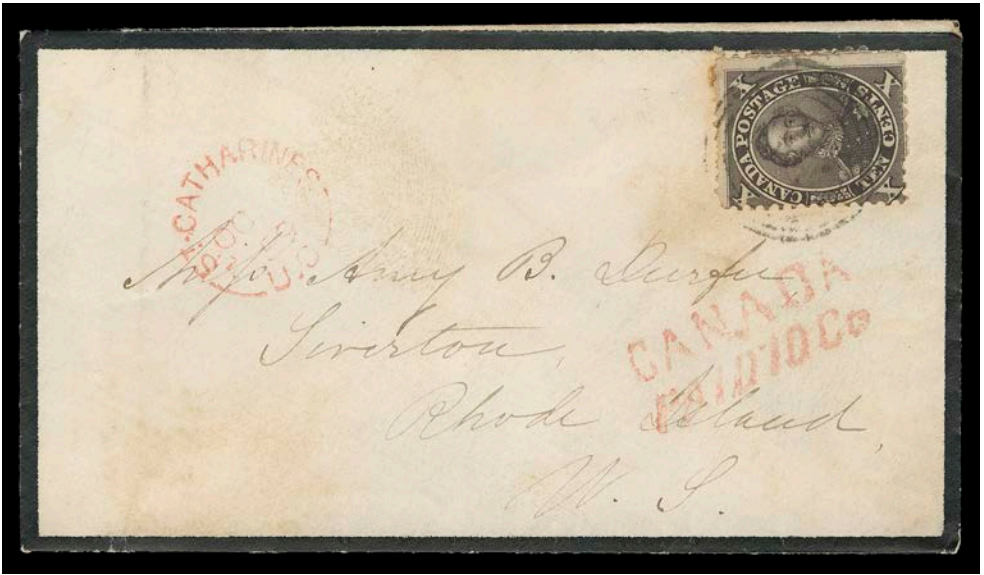 X CANADA POSTAGE X
X TEN CENTS X
ST. CATHARINES
OC
U.C
Miss Amy B. Durfee
Tiverton,
Rhode Island,
U. S.
CANADA
PAID 10 Cs